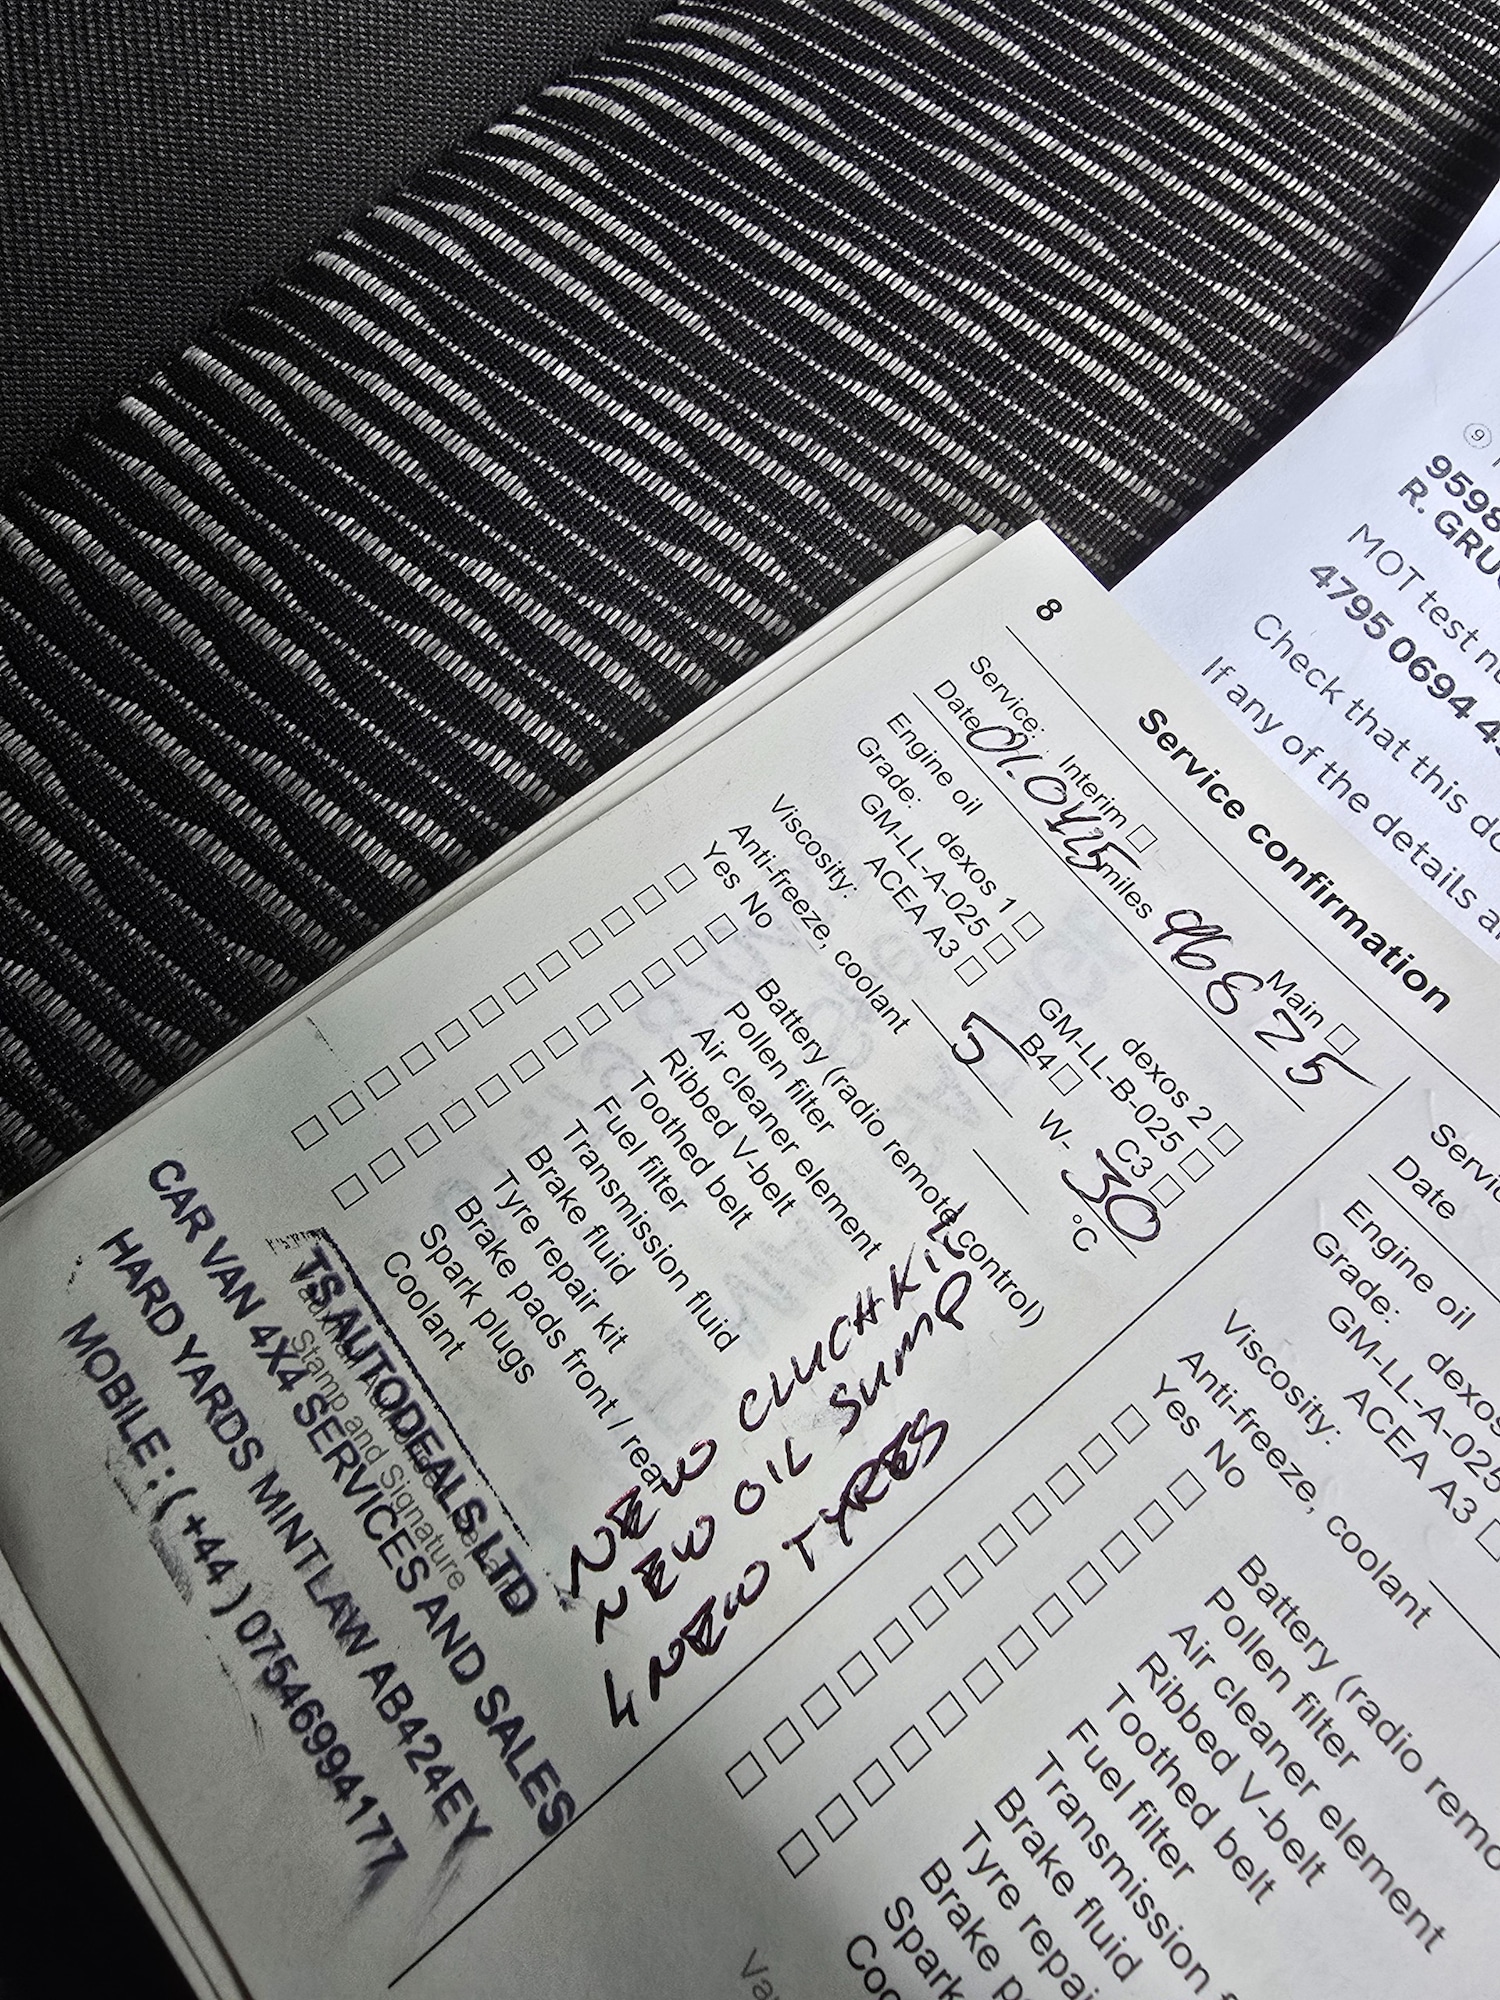 8
Service confirmation
Service: Interim □ Main □
Date 01.04.25 miles
Engine oil
Grade: dexos 1 □ dexos 2 □
GM-LL-A-025 □ GM-LL-B-025 □
ACEA A3 □ B4 □ C3 □
Viscosity: 5 W- 30
Anti-freeze, coolant °C
Yes No
□ □ Battery (radio remote control)
□ □ Pollen filter
□ □ Air cleaner element
□ □ Ribbed V-belt
□ □ Toothed belt
□ □ Fuel filter
□ □ Transmission fluid
□ □ Brake fluid
□ □ Tyre repair kit
□ □ Brake pads front / rear
□ □ Spark plugs
□ □ Coolant
NEW CLUCH KIT
NEW OIL SUMP
4 NEW TYRES
Stamp and Signature
TS AUTODEALS LTD
CAR VAN 4X4 SERVICES AND SALES
HARD YARDS MINTLAW AB424EY
MOBILE : ( +44 ) 07546994177
Date
Engine oil
Grade:
GM-LL-A-025
ACEA A3 □
Viscosity:
Anti-freeze, coolant
Yes No
□ □ Battery (radio
□ □ Pollen filter
□ □ Air cleaner element
□ □ Ribbed V-belt
□ □ Toothed belt
□ □ Fuel filter
□ □ Transmission
□ □ Brake fluid
□ □ Tyre
□ □ Brake
□ □ Spark
9
MOT test
4795 0694
Check that this
If any of the details